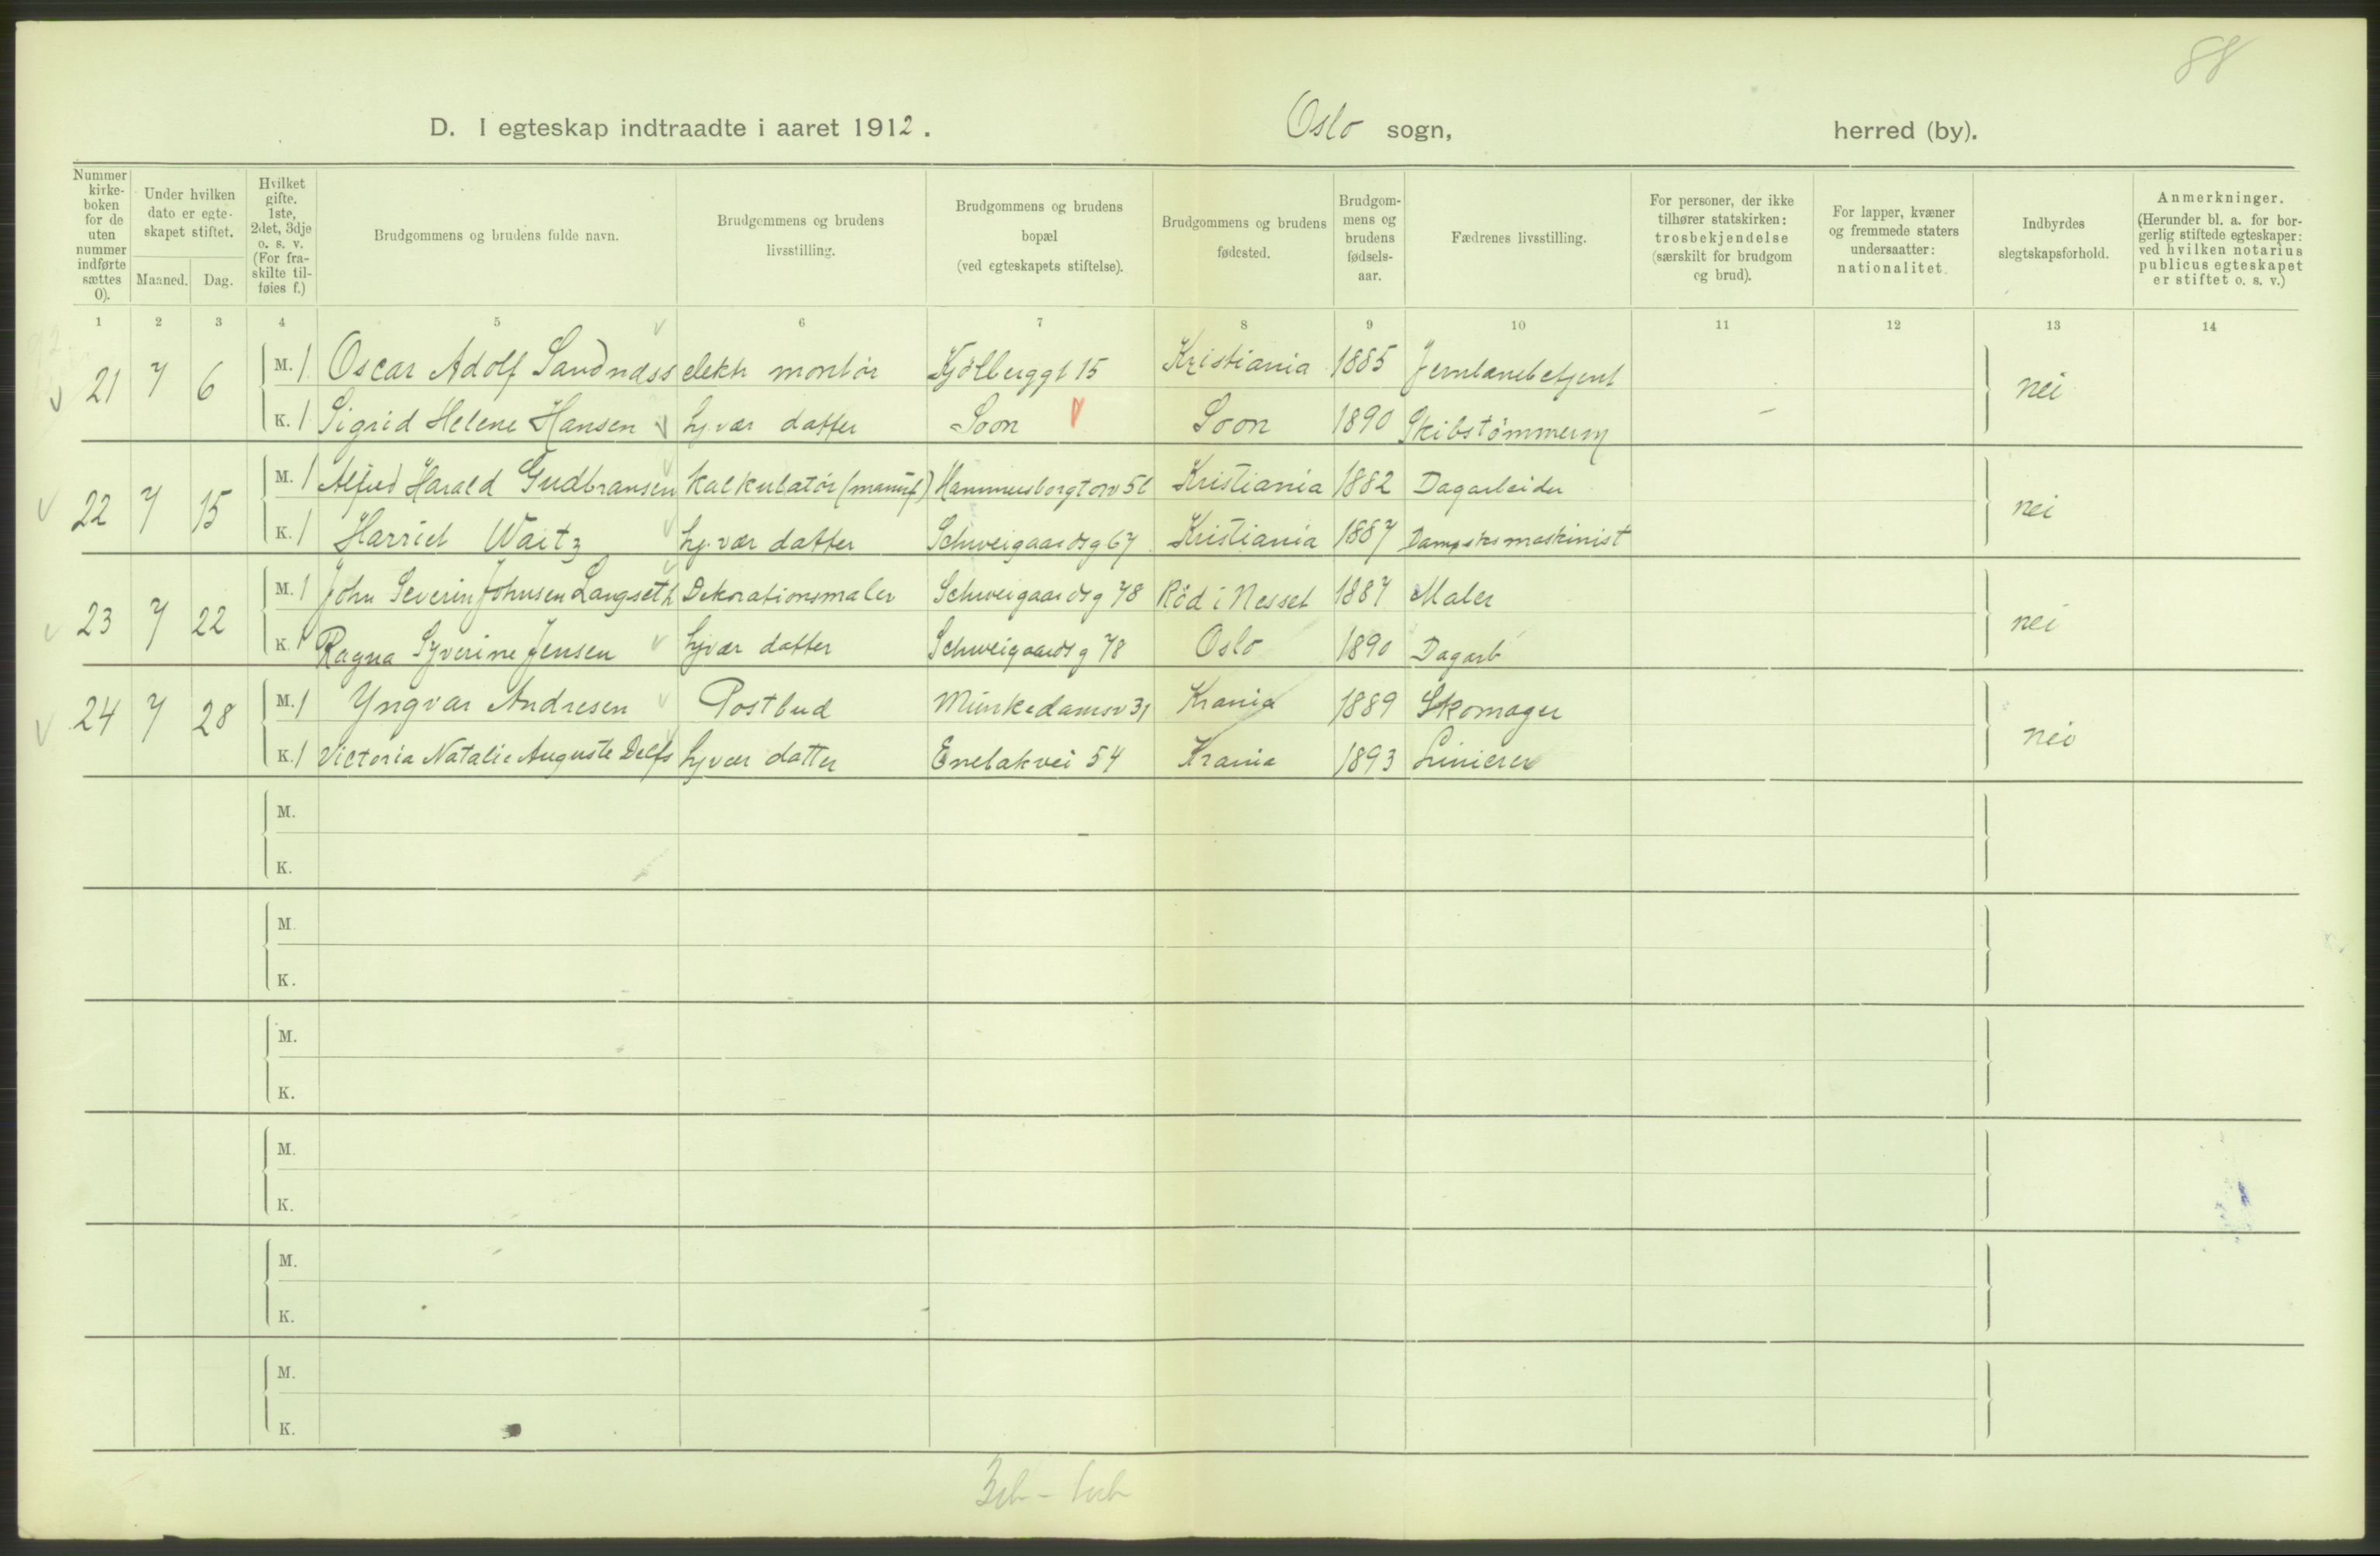 88
D. I egteskap indtraadte i aaret 1912. Oslo sogn, herred (by).
Nummer kirkeboken for de uten nummer indførte sættes 0).
Under hvilken dato er egteskapet stiftet.
Maaned. Dag.
Hvilket gifte. 1ste, 2det, 3dje o. s. v. (For fraskilte tilføies f.)
Brudgommens og brudens fulde navn.
Brudgommens og brudens livsstilling.
Brudgommens og brudens bopæl (ved egteskapets stiftelse).
Brudgommens og brudens fødested.
Brudgommens og brudens fødselsaar.
Fædrenes livsstilling.
For personer, der ikke tilhører statskirken: trosbekjendelse (særskilt for brudgom og brud).
For lapper, kvæner og fremmede staters undersaatter: nationalitet.
Indbyrdes slegtskapsforhold.
Anmerkninger. (Herunder bl. a. for borgerlig stiftede egteskaper: ved hvilken notarius publicus egteskapet er stiftet o. s. v.)
1 2 3 4 5 6 7 8 9 10 11 12 13 14
21 7 6 M. 1 Oscar Adolf Sandnæss elektr montør Kjølberggt 15 Kristiania 1885 Jernbanebetjent nei
K. 1 Sigrid Helene Hansen hj.vær datter Soon Soon 1890 Skibstømmerm
22 7 15 M. 1 Alfred Harald Gudbransen Kalkulatør (manuf) Hammersborgtorv 5 Kristiania 1882 Dagarbeider nei
K. 1 Harriet Waitz hj.vær datter Schweigaardsg 67 Kristiania 1887 Dampsksmaskinist
23 7 22 M. 1 John Severin Johnsen Langseth Dekorationsmaler Schweigaardsg 78 Rød i Nesset 1887 Maler nei
K. 1 Ragna Syverine Jensen hjvær datter Schweigaardsg 78 Oslo 1890 Dagarb
24 7 28 M. 1 Yngvar Andresen Postbud Munkedamsv 31 Krania 1889 Skomager nei
K. 1 Victoria Natalie Auguste Delfs hjvær datter Enebakvei 54 Krania 1893 Linierer
M.
K.
M.
K.
M.
K.
M.
K.
M.
K.
M.
K.